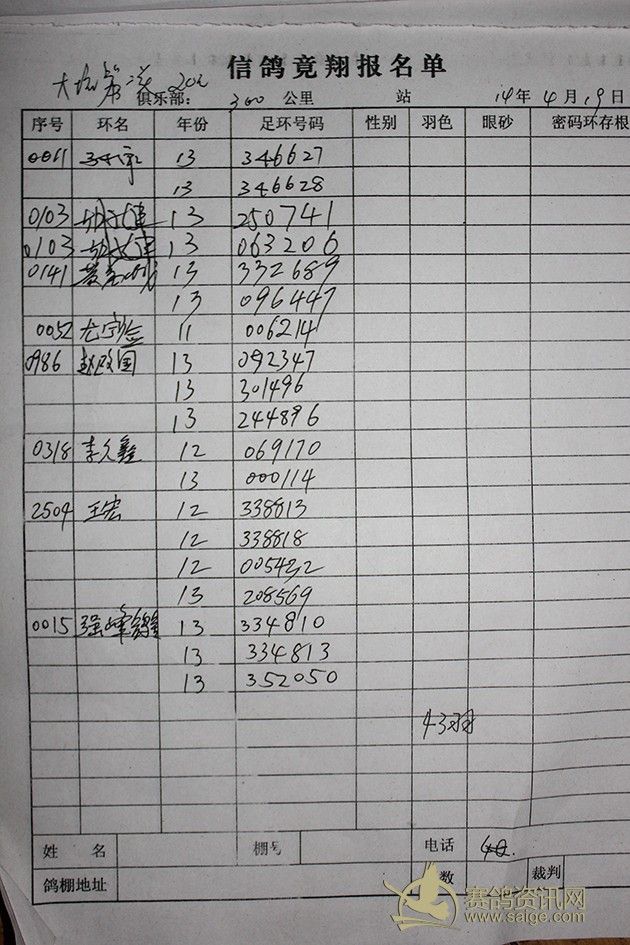 信鸽竟翔报名单
俱乐部: 300 公里 站 14年4月19日
序号 环名 年份 足环号码 性别 羽色 眼砂 密码环存根
0061 13 346627
13 346628
0103 13 250741
0103 13 063206
0141 13 332689
13 096447
0052 11 006214
0986 赵政国 13 092347
13 301496
13 244896
0318 李久鑫 12 069170
13 000114
2504 王宏 12 338813
12 338818
12
13 208569
0015 强峰鸽 13 334810
13 334813
13 352050
43羽
姓 名 棚号 电话
鸽棚地址 数 裁判
赛鸽资讯网
www.saige.com